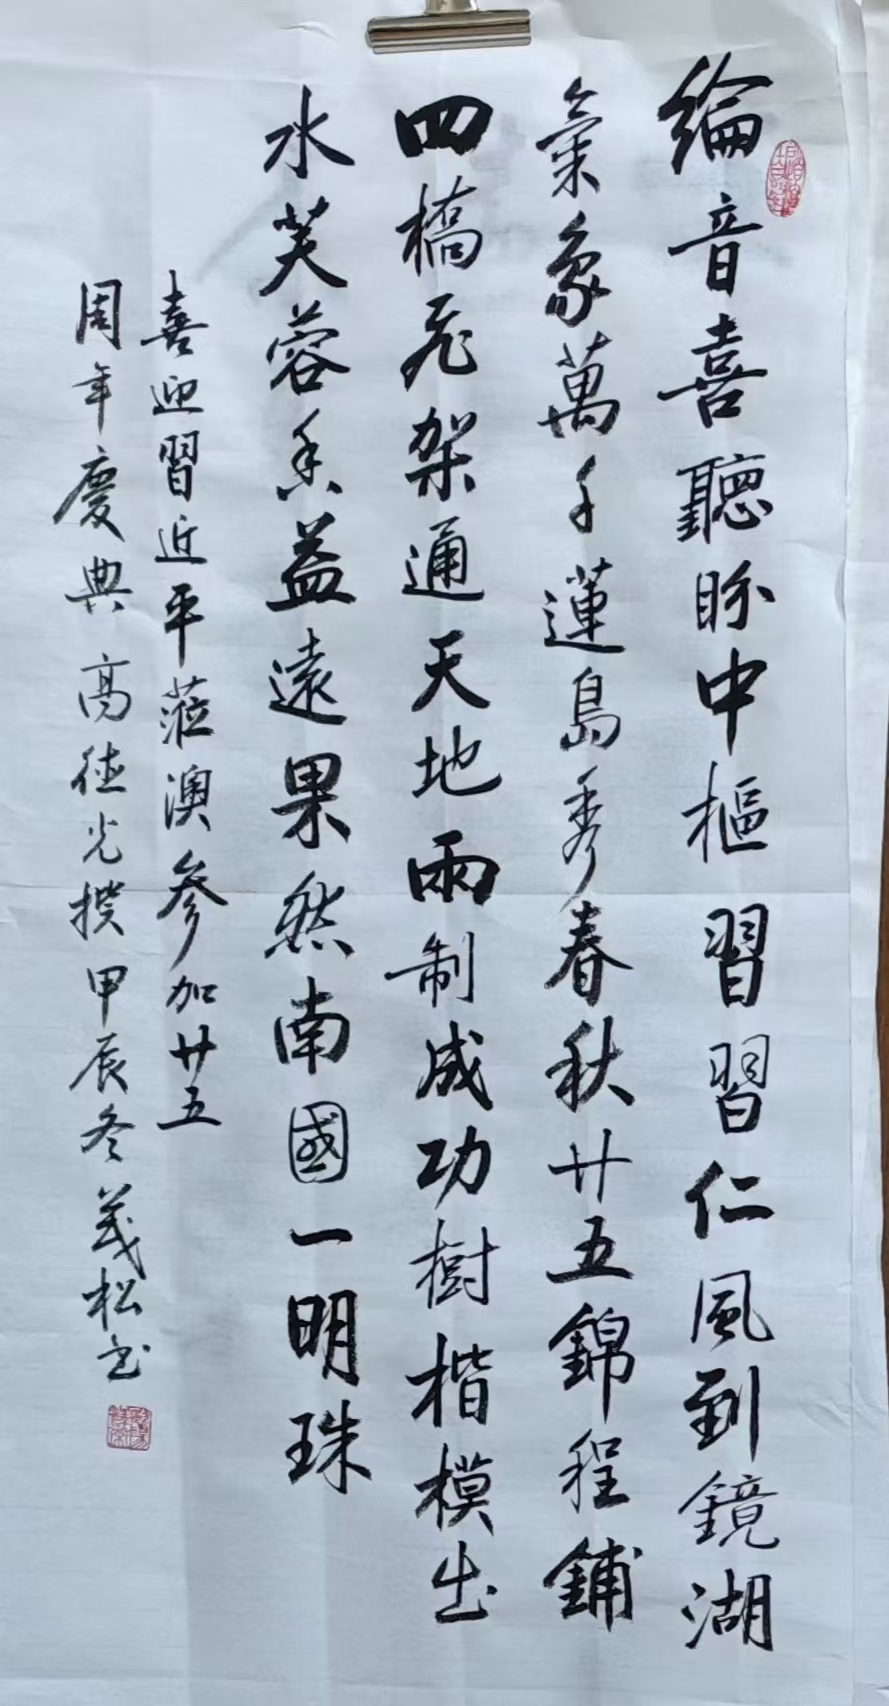 綸音喜聽盼中樞習習仁風到鏡湖
氣象萬千蓮島秀春秋廿五錦程鋪
四橋飛架通天地兩制成功樹楷模出
水芙蓉香益遠果然南國一明珠
喜迎習近平蒞澳參加廿五
周年慶典高德光撰甲辰冬義松书